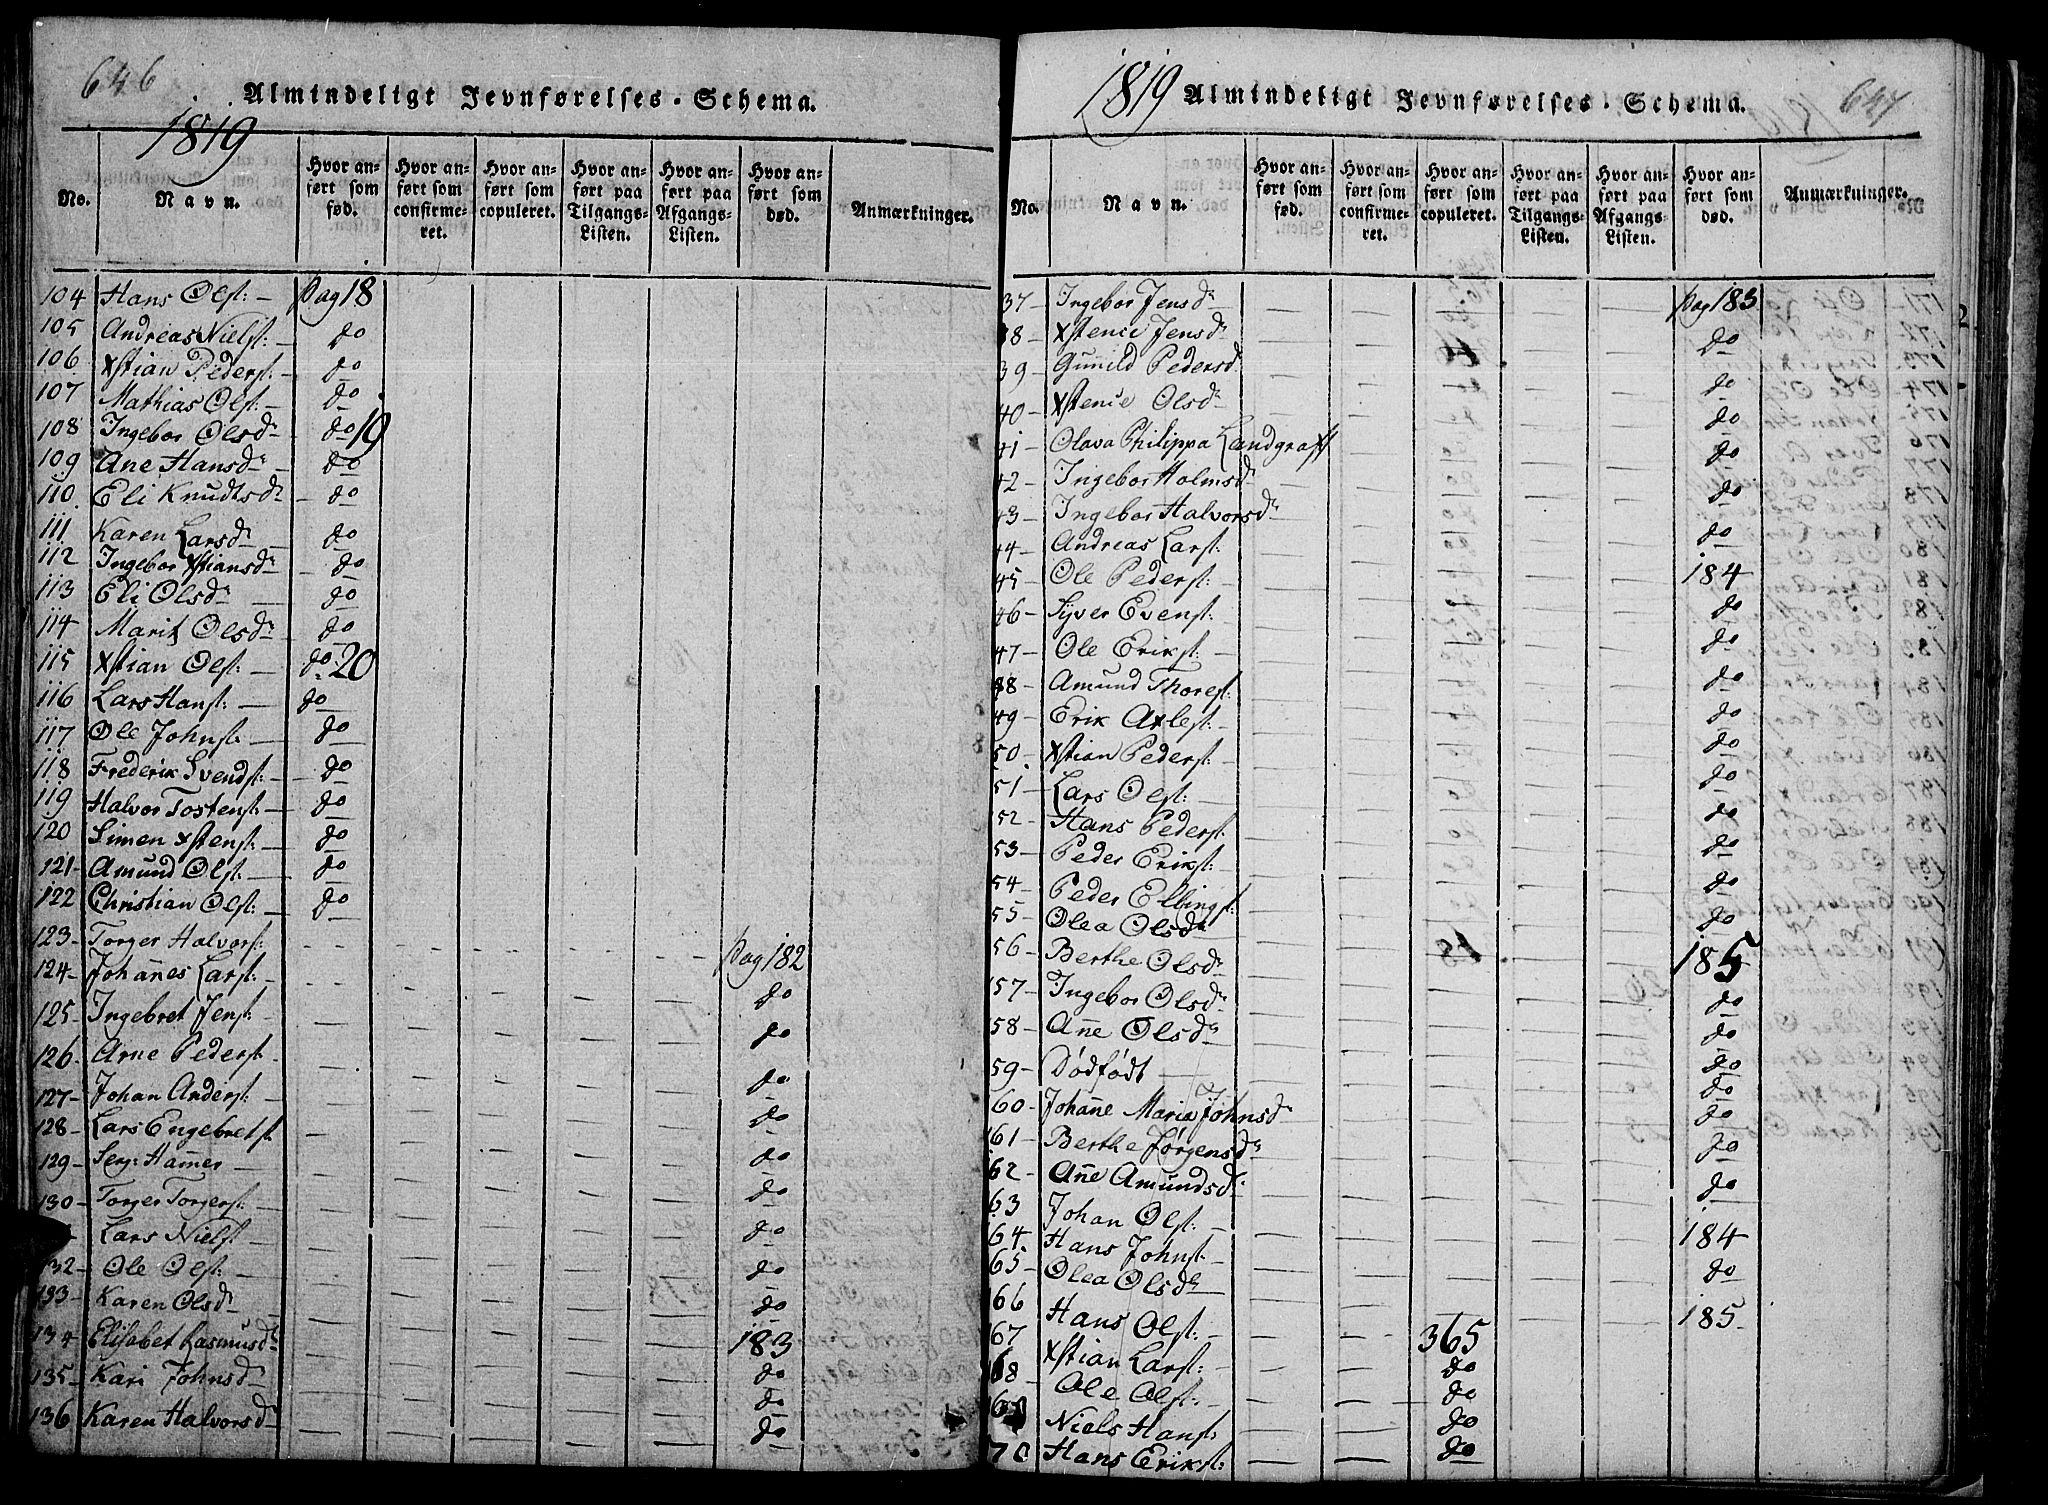 646
Almindeligt Jevnførelses-Schema.
1819
No.
Navn.
Hvor anført som fød.
Hvor anført som confirmeret.
Hvor anført som copuleret.
Hvor anført paa Tilgangs-Listen.
Hvor anført paa Afgangs-Listen.
Hvor anført som død.
Anmærkninger.
104 Hans Olss: Pag 18
105 Andreas Nielss: do
106 Xstian Pederss: do
107 Mathias Olss: do
108 Ingebor Olsdr do 19
109 Ane Hansdr do
110 Eli Knudtsdr do
111 Karen Larsdr do
112 Ingebor Xstiansdr do
113 Eli Olsdr do
114 Marit Olsdr do
115 Xstian Olss: do 20
116 Lars Hanss: do
117 Ole Johnss: do
118 Frederik Svendss: do
119 Halvor Tostenss: do
120 Simen Xstenss: do
121 Amund Olss: do
122 Christian Olss: do
123 Torger Halvorss: Pag 182
124 Johañes Larss: do
125 Ingebret Jenss: do
126 Arne Pederss: do
127 Johan Anderss: do
128 Lars Engebretss: do
129 Serj: Ham̃er do
130 Torger Torgerss: do
Lars Nielss: do
132 Ole Olss: do
133 Karen Olsdr
134 Elisabet Rasmusdr 183
135 Kari Johnsd do
136 Karen Halvorsd do
1819
Almindeligt Jevnførelses-Schema.
647
No.
Navn.
Hvor anført som fød.
Hvor anført som confirmeret.
Hvor anført som copuleret.
Hvor anført paa Tilgangs-Listen.
Hvor anført paa Afgangs-Listen.
Hvor anført som død.
Anmærkninger.
37 Ingebor Jensdr Pag 183
38 Xstence Jensdr do
39 Guñild Pedersd do
40 Xstence Olsdr do
41 Olava Philippa Landgraff do
42 Ingebor Holmsdr do
43 Ingebor Halvorsdr do
44 Andreas Larss:
45 Ole Pederss: 184
46 Syver Evenss: do
47 Ole Erikss: do
48 Amund Thoress: do
49 Erik Axless: do
50 Xstian Pederss: do
51 Lars Olss: do
52 Hans Pederss: do
53 Peder Erikss: do
54 Peder Elbingss: do
55 Olea Olsdr do
56 Berthe Olsdr 185
157 Ingebor Olsdr do
58 Añe Olsdr do
59 Dødfødt do
60 Johañe Maria Johnsdr do
161 Berthe Jørgensdr do
62 Añe Amundsdr do
63 Johan Olss: 184
64 Hans Johnss:
65 Olea Olsdr do
166 Hans Olss: 185
167 Xstian Larss: 365
168 Ole Olss: do
169 Niels Hanss: do
70 Hans Erikss: do